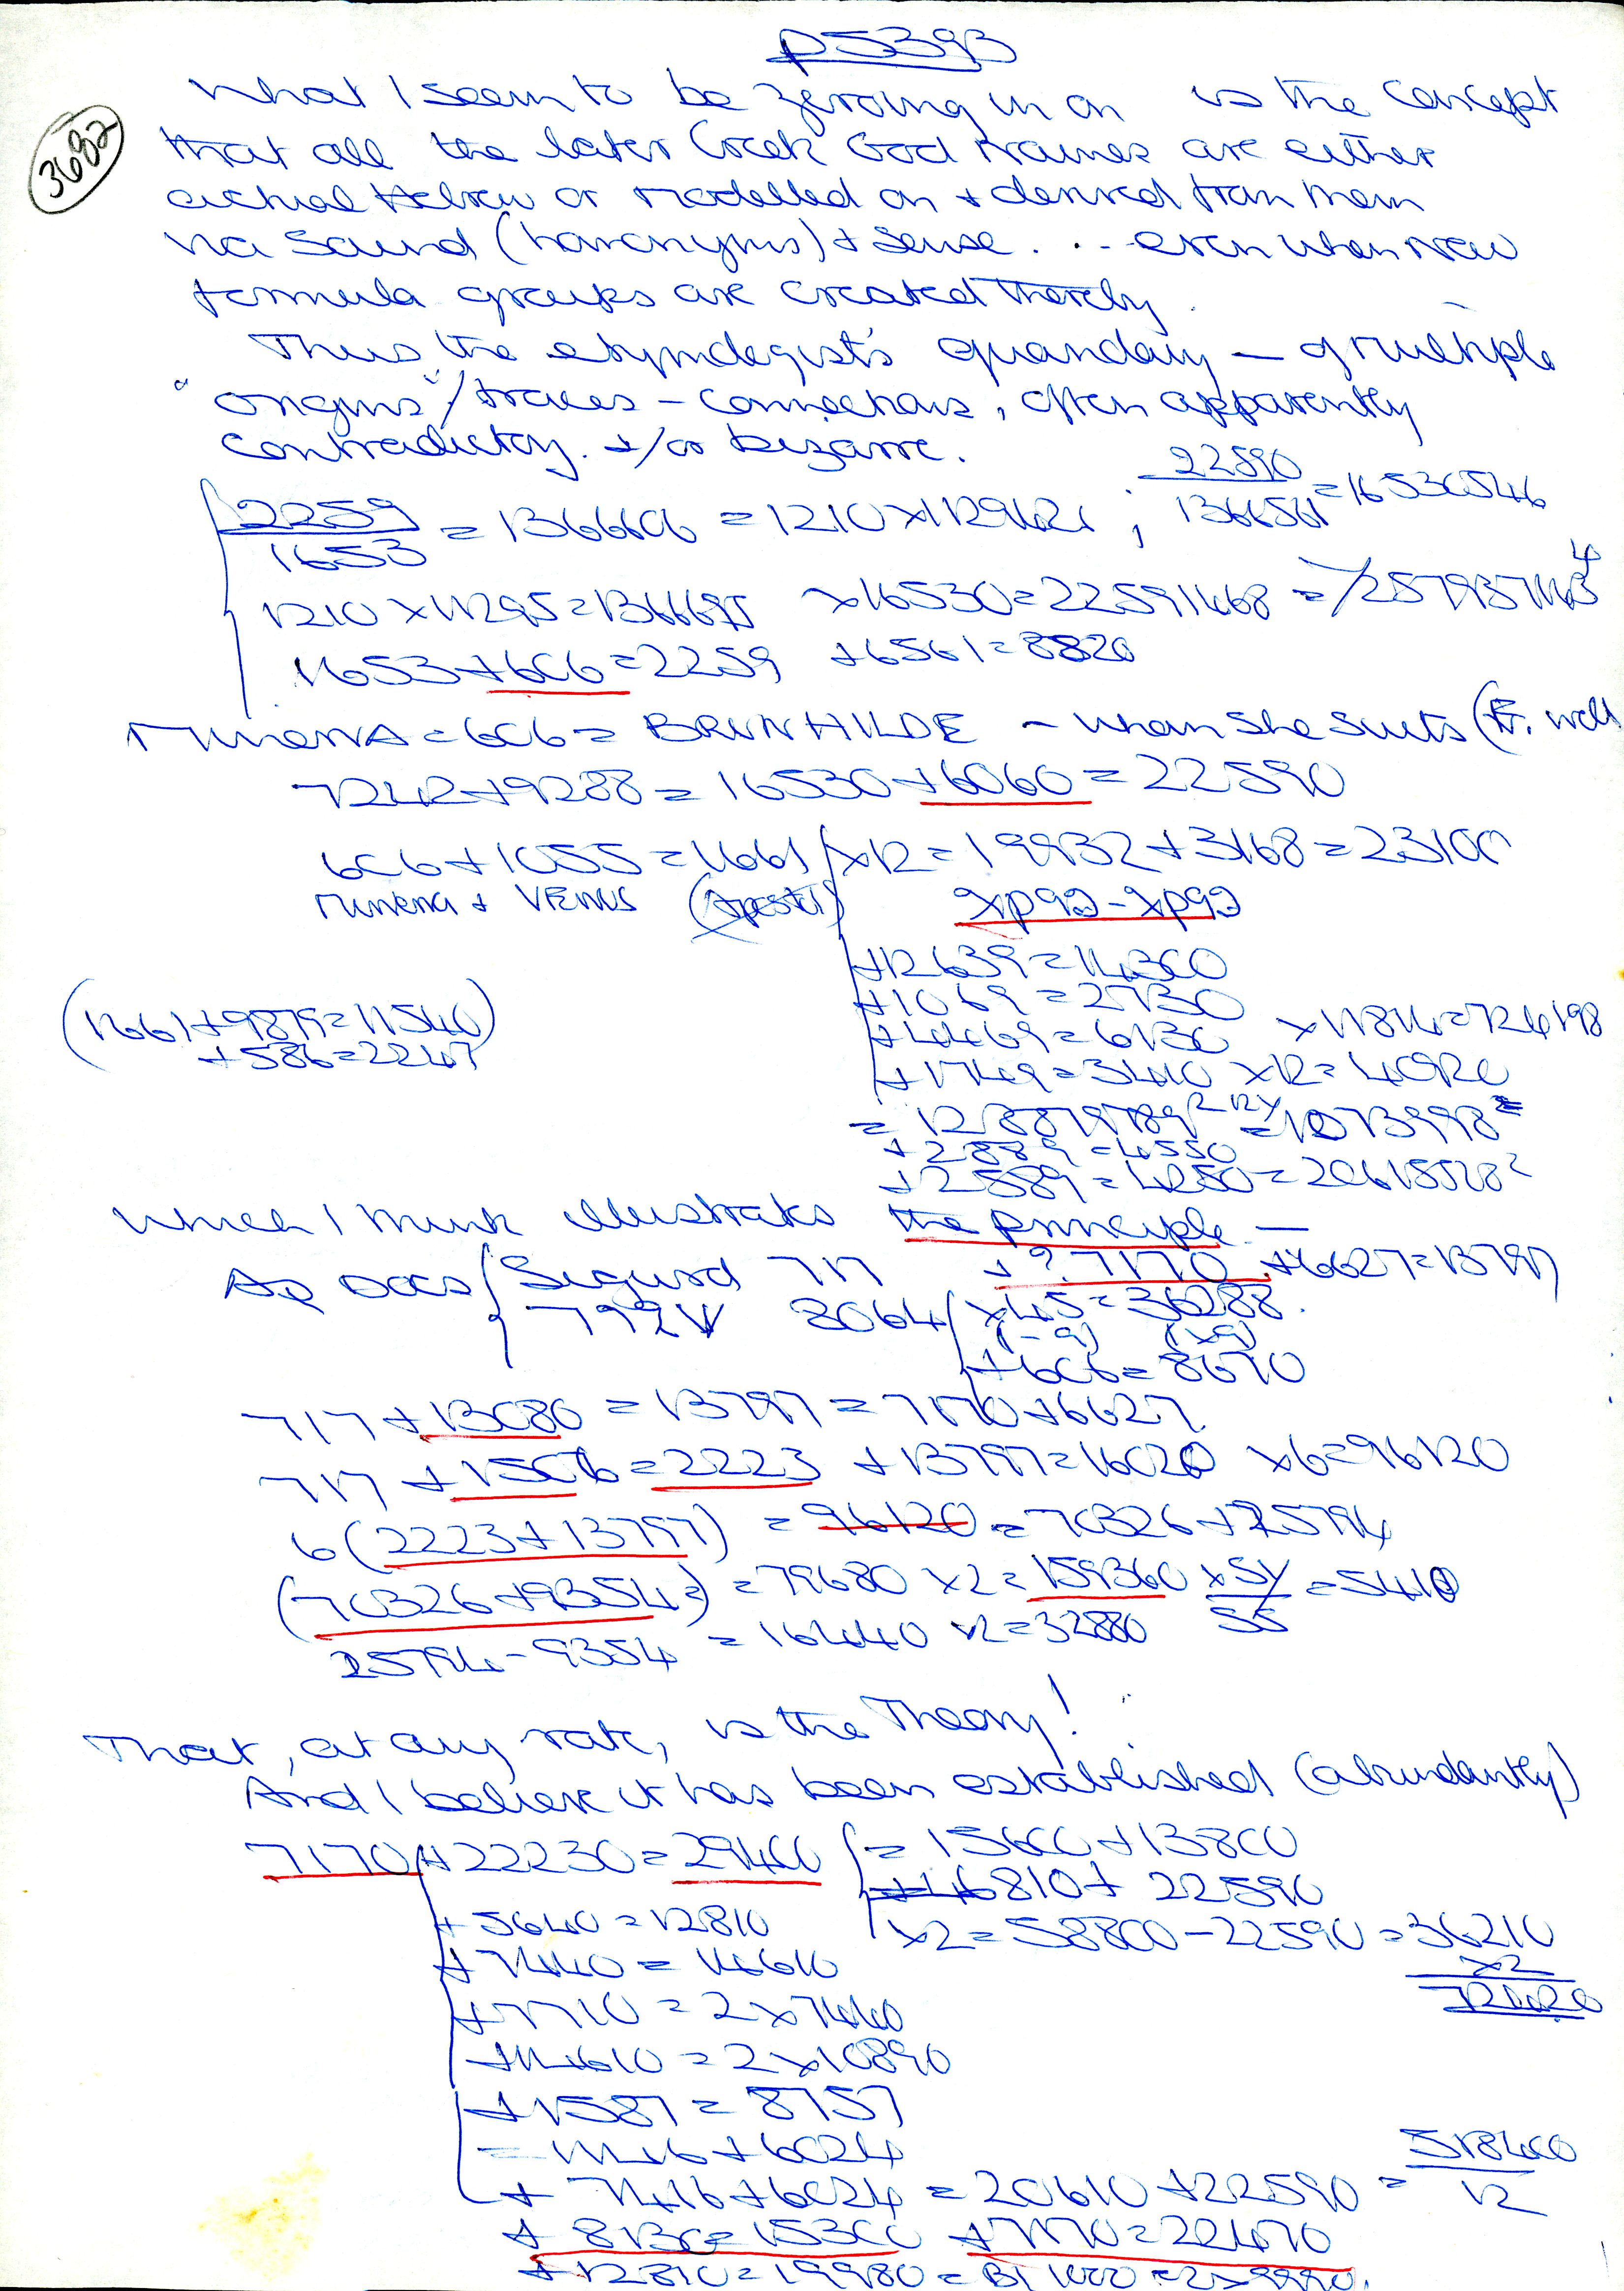 p5393
3682
What I seem to be zeroing in on is the concept
that all the later Greek God names are either
actual Hebrew or modelled on + derived from them
via Sound (homonyms) + sense . . . even when new
formula groups are created thereby.
Thus the etymologist's quandary — of multiple
"origins"/traces - connections, often apparently
contradictory. +/or bizarre.
2259/1653 = 1366606 = 1210 x 1129421 ; 22590/1366561 = 16530546
1210 x 11295 = 1366695 x16530 = 22591468
1653 + 606 = 2259 + 6561 = 8820
Minerva = 606 = BRUNHILDE - when she suits
7242 + 9288 = 16530 + 6060 = 22590
606 + 1055 = 1661 x12 = 19932 + 3168 = 23100
Minerva + VENUS
+12639 = 14300
+1069 = 2730
(1661 + 9879 = 11540)
+ 586 = 2247
+4469 = 6130 x11814 = 724198
+1749 = 3410 x12 = 40920
+2889 = 4550
+2589 = 4250 = 20618528²
Which I think illustrates the principle —
As does Sigurd 717 + ?. 7170 + 6627 = 13797
8064 x4.5 = 36288
(-9) (x9)
+606 = 8670
717 + 13080 = 13797 = 7170 + 6627
717 + 1506 = 2223 + 13797 = 16020 x6 = 96120
6(2223 + 13797) = 96120 = 70326 + 25794
(70326 + 9354 =) = 79680 x2 = 159360
25794 - 9354 = 16440 x2 = 32880
That, at any rate, is the Theory!
And I believe it has been established (abundantly)
7170 + 22230 = 29400 = 15600 + 13800
6810 + 22590
+ 5640 = 12810
x2 = 58800 - 22590 = 36210
x2
72420
+ 7440 = 14610
+ 7710 = 2 x 7440
+14610 = 2 x 10890
+ 1587 = 8757
+ 7416 + 6024 = 20610 + 22590 = 518400/12
+ 8130 = 15300 + 7170 = 22470
+ 12810 = 19980 = 2 x 9990.